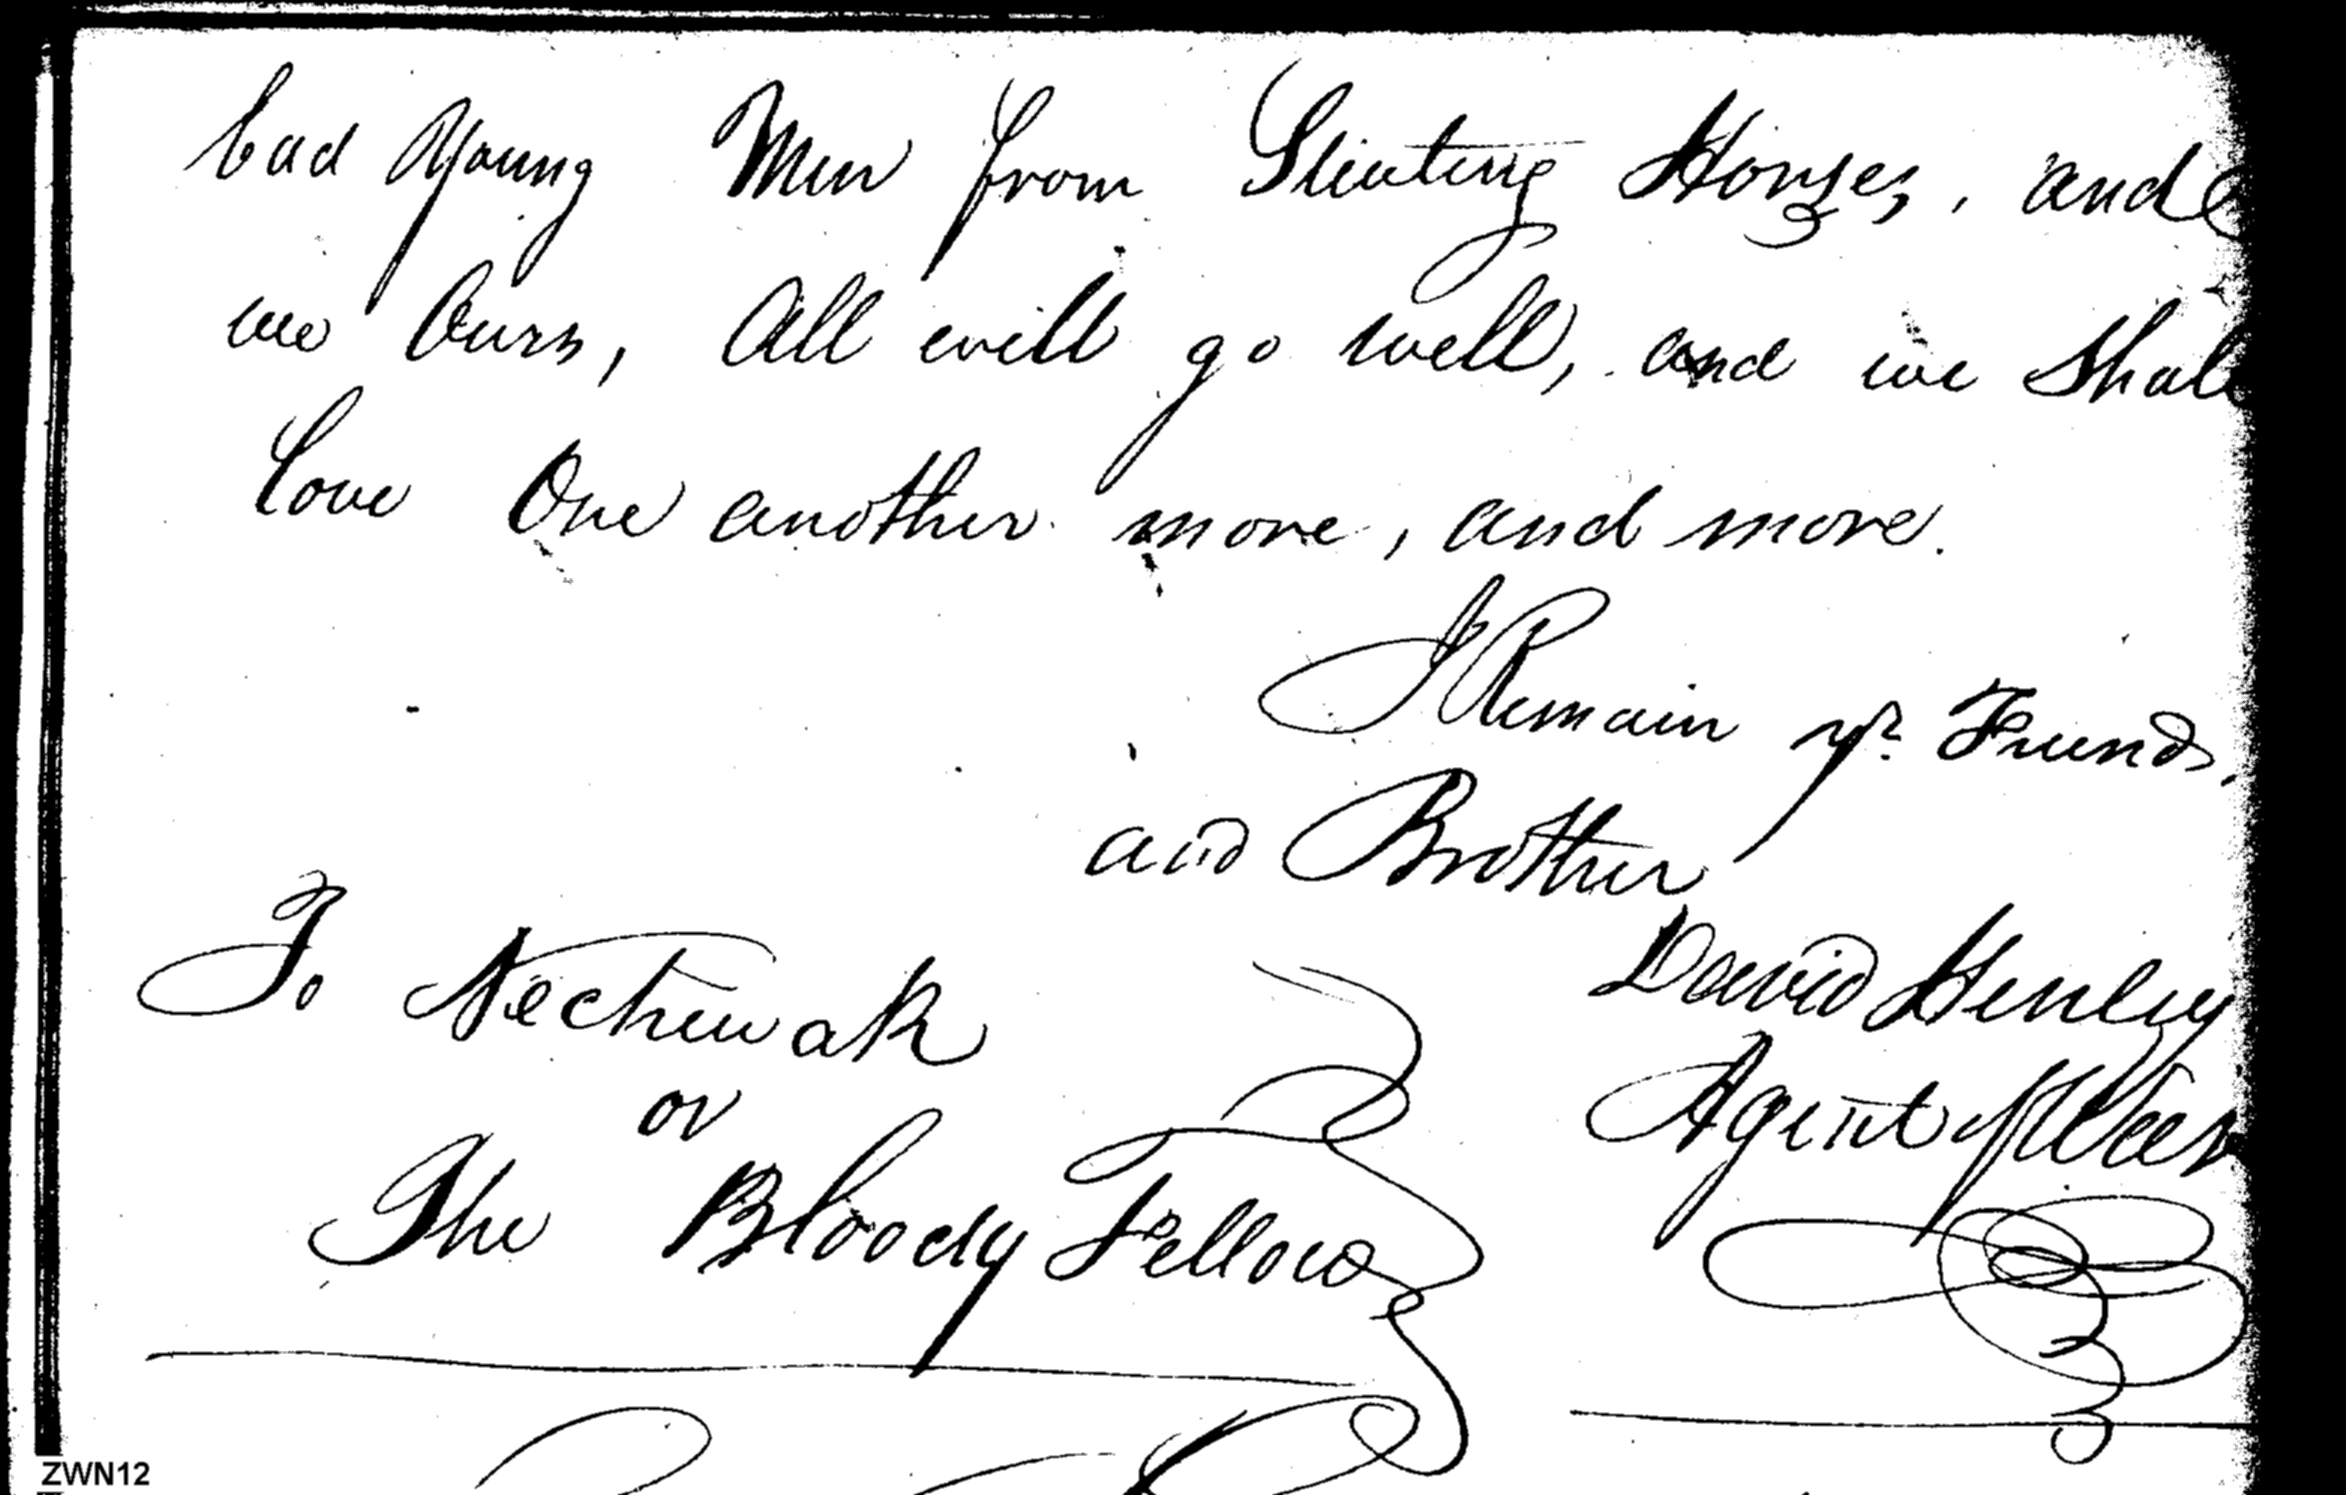 bad Young Men from Steating Horses, and
we Ours, All will go well, and we shall
love One another more, and more.
I Remain yr. Friend,
and Brother
David Henley
Agent of War
To Nechewak
or
The Bloody Fellow
ZWN12